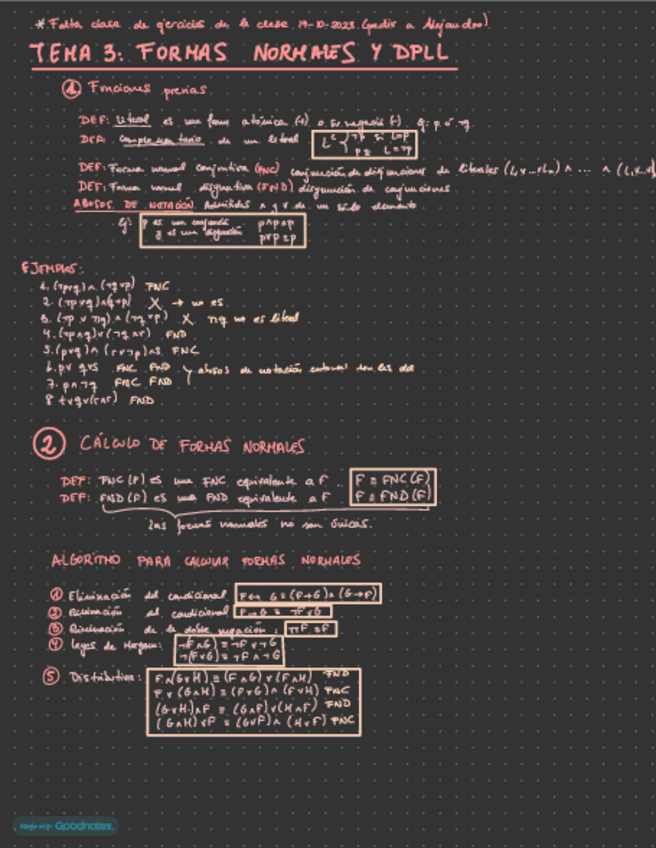 * Falta clase de ejercicios de la clase 19-10-2023 (pedir a Alejandro)
TEMA 3: FORMAS NORMALES Y DPLL
① Funciones previas
DEF: Literal es una forma atómica (+) o su negación (-). Ej: p ó ¬q
DEF: Complementario de un literal
DEF: Forma normal conjuntiva (FNC) conjunción de disjunciones de literales (L₁v...vLₙ) ∧ ... ∧ (L₁v
DEF: Forma normal disjuntiva (FND) disjunción de conjunciones
ABUSOS DE NOTACIÓN Admitidos ∧ y v de un sólo elemento
Ej:
p∧p≡p
pvp≡p
EJEMPLOS:
FNC
X → no es
X ¬¬q no es literal
4. (¬p∧q)v(¬q∧r) FND
5. (pvq)∧(rv¬p)∧s FNC
6. pv qvs FNC FND abusos de notación
7. p∧¬q FNC FND
FND
② CÁLCULO DE FORMAS NORMALES
DEF: FNC(F) es una FNC equivalente a F F ≡ FNC(F)
DEF: FND(F) es una FND equivalente a F F ≡ FND(F)
Las formas normales no son únicas.
ALGORITMO PARA CALCULAR FORMAS NORMALES
① Eliminación del condicional F↔G ≡ (F→G)∧(G→F)
② Eliminación del condicional F→G ≡ ¬FvG
③ Eliminación de la doble negación: ¬¬F≡F
④ Leyes de Morgan: ¬(F∧G)≡¬Fv¬G
¬(FvG)≡¬F∧¬G
⑤ Distributiva: F∧(GvH)≡(F∧G)v(F∧H) FND
Fv(G∧H)≡(FvG)∧(FvH) FNC
(GvH)∧F ≡ (G∧F)v(H∧F) FND
(G∧H)vF ≡ (GvF)∧(HvF) FNC
Made with Goodnotes